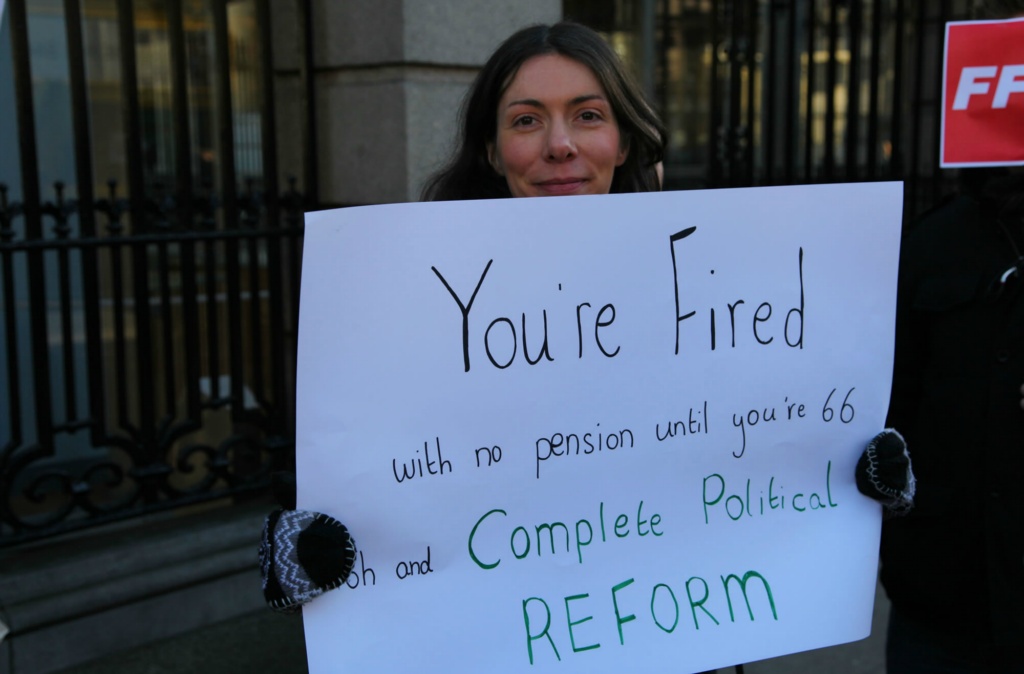 FF
You're Fired
with no pension until you're 66
oh and Complete Political
REFORM